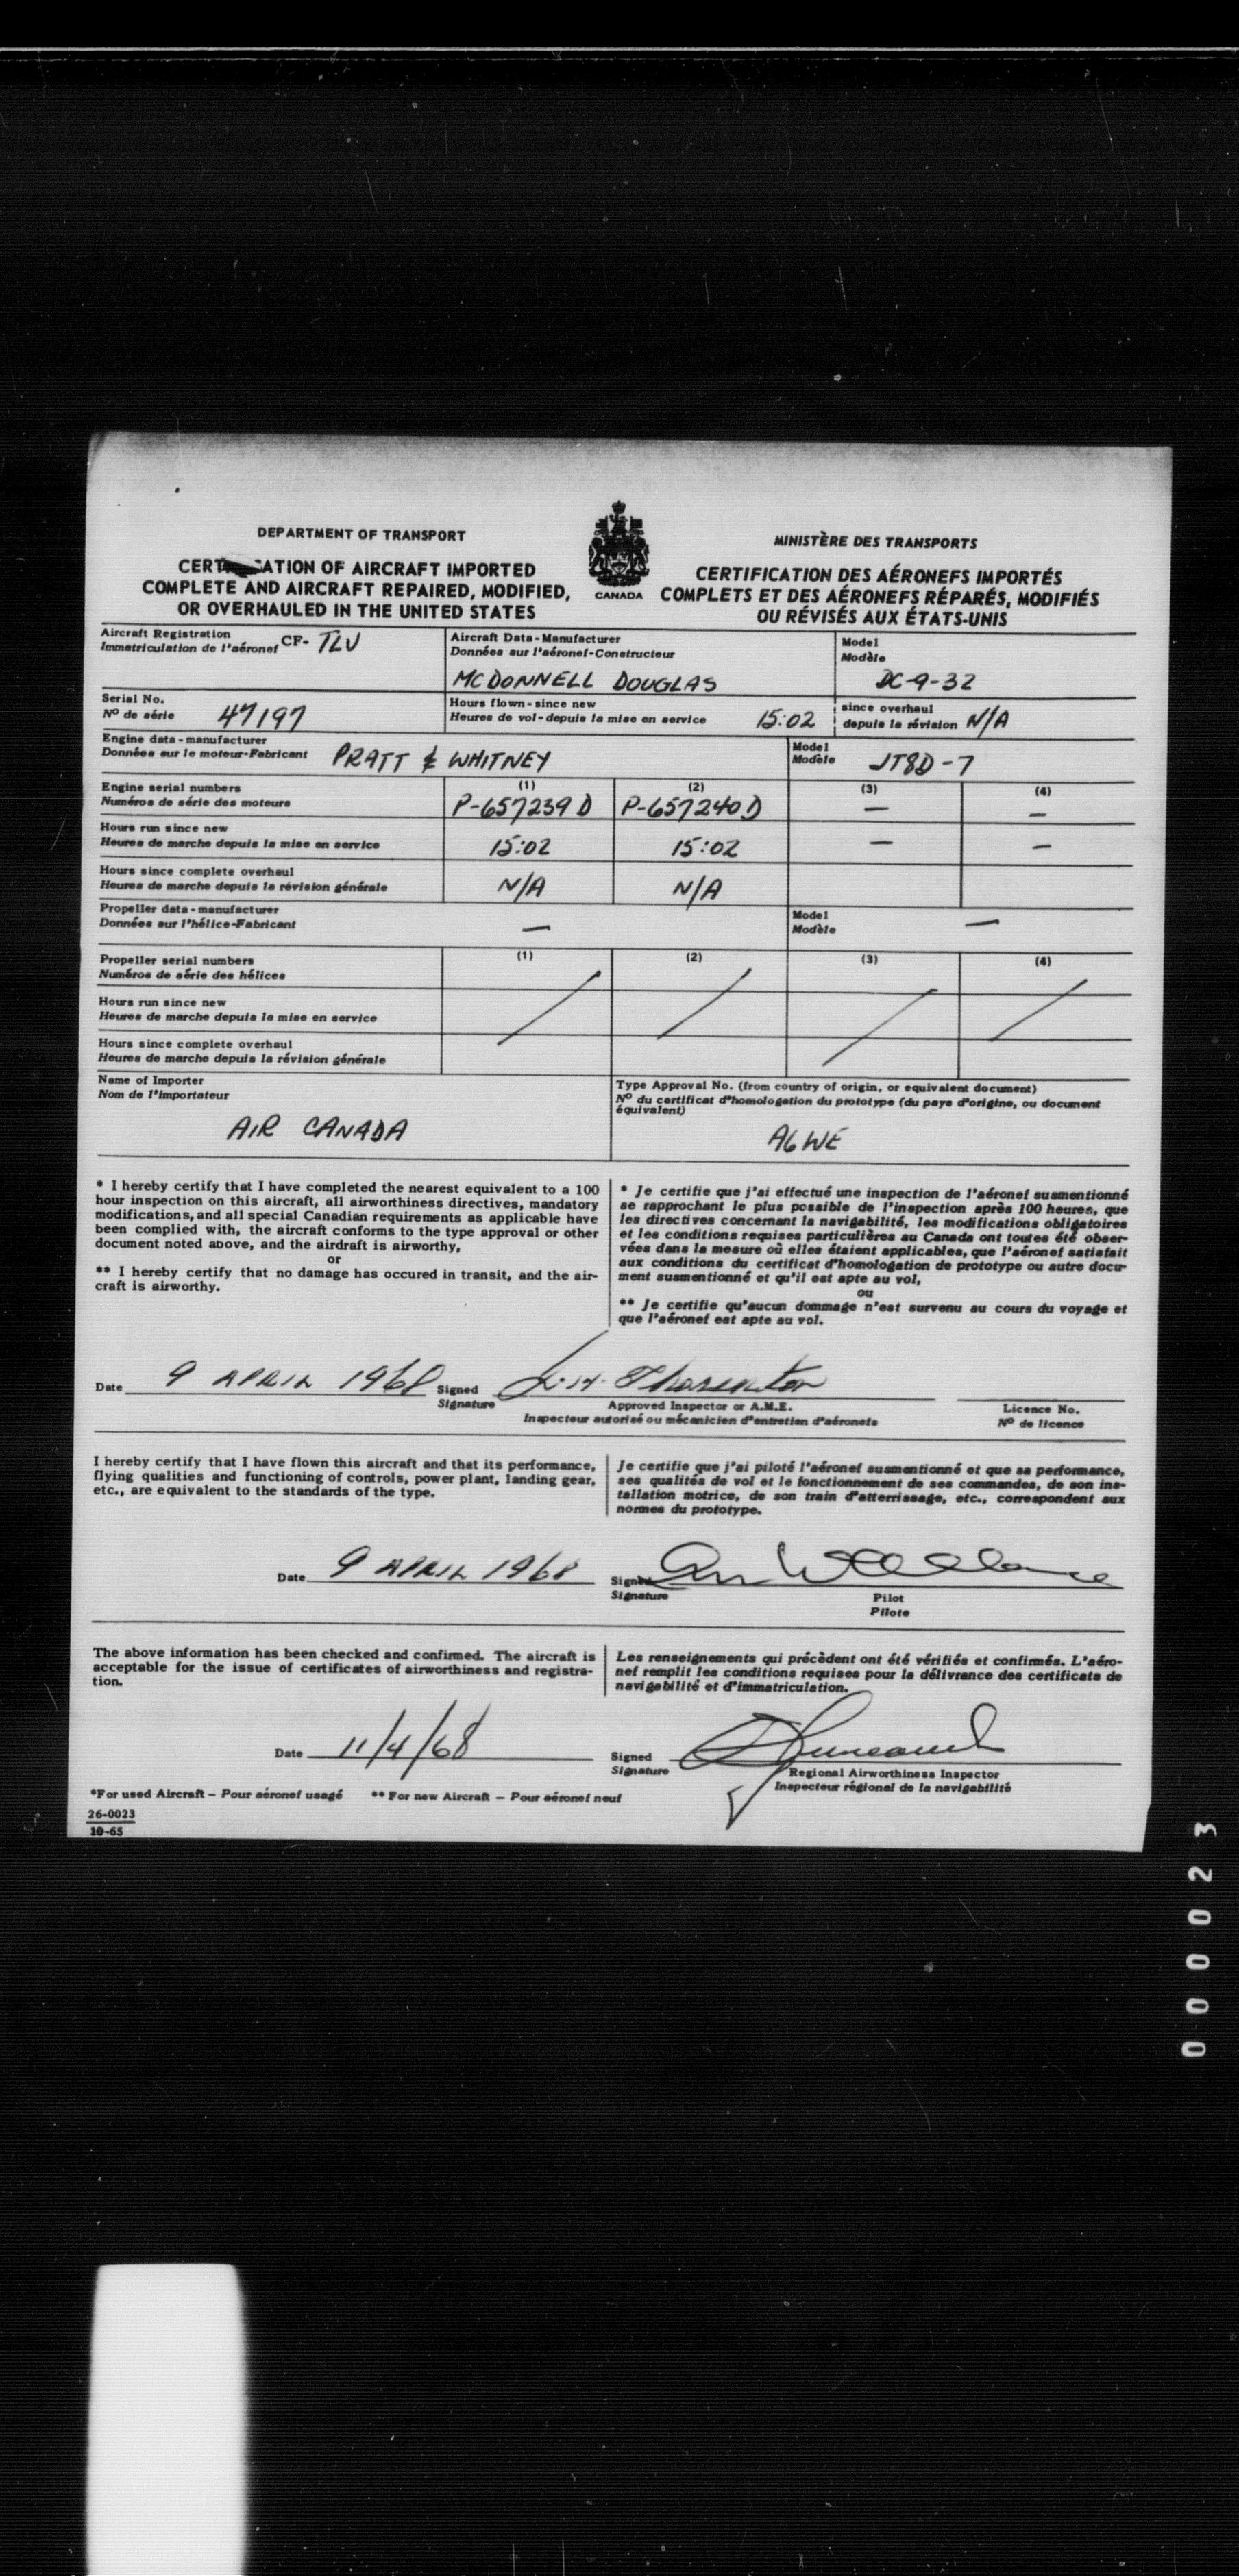 DEPARTMENT OF TRANSPORT
CERTIFICATION OF AIRCRAFT IMPORTED
COMPLETE AND AIRCRAFT REPAIRED, MODIFIED,
OR OVERHAULED IN THE UNITED STATES
CANADA
MINISTÈRE DES TRANSPORTS
CERTIFICATION DES AÉRONEFS IMPORTÉS
COMPLETS ET DES AÉRONEFS RÉPARÉS, MODIFIÉS
OU RÉVISÉS AUX ÉTATS-UNIS
Aircraft Registration
Immatriculation de l'aéronef CF- TLU
Aircraft Data - Manufacturer
Données sur l'aéronef-Constructeur
MCDONNELL DOUGLAS
Model
Modèle
DC-9-32
Serial No.
Nº de série 47197
Hours flown - since new
Heures de vol - depuis la mise en service 15:02
since overhaul
depuis la révision N/A
Engine data - manufacturer
Données sur le moteur-Fabricant PRATT & WHITNEY
Model
Modèle JT8D-7
Engine serial numbers
Numéros de série des moteurs
(1) (2) (3) (4)
P-657239 D P-657240 D — —
Hours run since new
Heures de marche depuis la mise en service 15:02 15:02 — —
Hours since complete overhaul
Heures de marche depuis la révision générale N/A N/A
Propeller data - manufacturer
Données sur l'hélice-Fabricant —
Model
Modèle —
Propeller serial numbers
Numéros de série des hélices
(1) (2) (3) (4)
Hours run since new
Heures de marche depuis la mise en service
Hours since complete overhaul
Heures de marche depuis la révision générale
Name of Importer
Nom de l'importateur
AIR CANADA
Type Approval No. (from country of origin, or equivalent document)
Nº du certificat d'homologation du prototype (du pays d'origine, ou document
équivalent)
A6WE
* I hereby certify that I have completed the nearest equivalent to a 100
hour inspection on this aircraft, all airworthiness directives, mandatory
modifications, and all special Canadian requirements as applicable have
been complied with, the aircraft conforms to the type approval or other
document noted above, and the airdraft is airworthy,
or
** I hereby certify that no damage has occured in transit, and the air-
craft is airworthy.
* Je certifie que j'ai effectué une inspection de l'aéronef susmentionné
se rapprochant le plus possible de l'inspection après 100 heures, que
les directives concernant la navigabilité, les modifications obligatoires
et les conditions requises particulières au Canada ont toutes été obser-
vées dans la mesure où elles étaient applicables, que l'aéronef satisfait
aux conditions du certificat d'homologation de prototype ou autre docu-
ment susmentionné et qu'il est apte au vol,
ou
** Je certifie qu'aucun dommage n'est survenu au cours du voyage et
que l'aéronef est apte au vol.
Date 9 APRIL 1968 Signed
Signature
Approved Inspector or A.M.E.
Inspecteur autorisé ou mécanicien d'entretien d'aéronefs
Licence No.
Nº de licence
I hereby certify that I have flown this aircraft and that its performance,
flying qualities and functioning of controls, power plant, landing gear,
etc., are equivalent to the standards of the type.
Je certifie que j'ai piloté l'aéronef susmentionné et que sa performance,
ses qualités de vol et le fonctionnement de ses commandes, de son ins-
tallation motrice, de son train d'atterrissage, etc., correspondent aux
normes du prototype.
Date 9 APRIL 1968
Signed
Signature
Pilot
Pilote
The above information has been checked and confirmed. The aircraft is
acceptable for the issue of certificates of airworthiness and registra-
tion.
Les renseignements qui précèdent ont été vérifiés et confirmés. L'aéro-
nef remplit les conditions requises pour la délivrance des certificats de
navigabilité et d'immatriculation.
Date 11/4/68
Signed
Signature
Regional Airworthiness Inspector
Inspecteur régional de la navigabilité
*For used Aircraft – Pour aéronef usagé ** For new Aircraft – Pour aéronef neuf
26-0023
10-65
000023